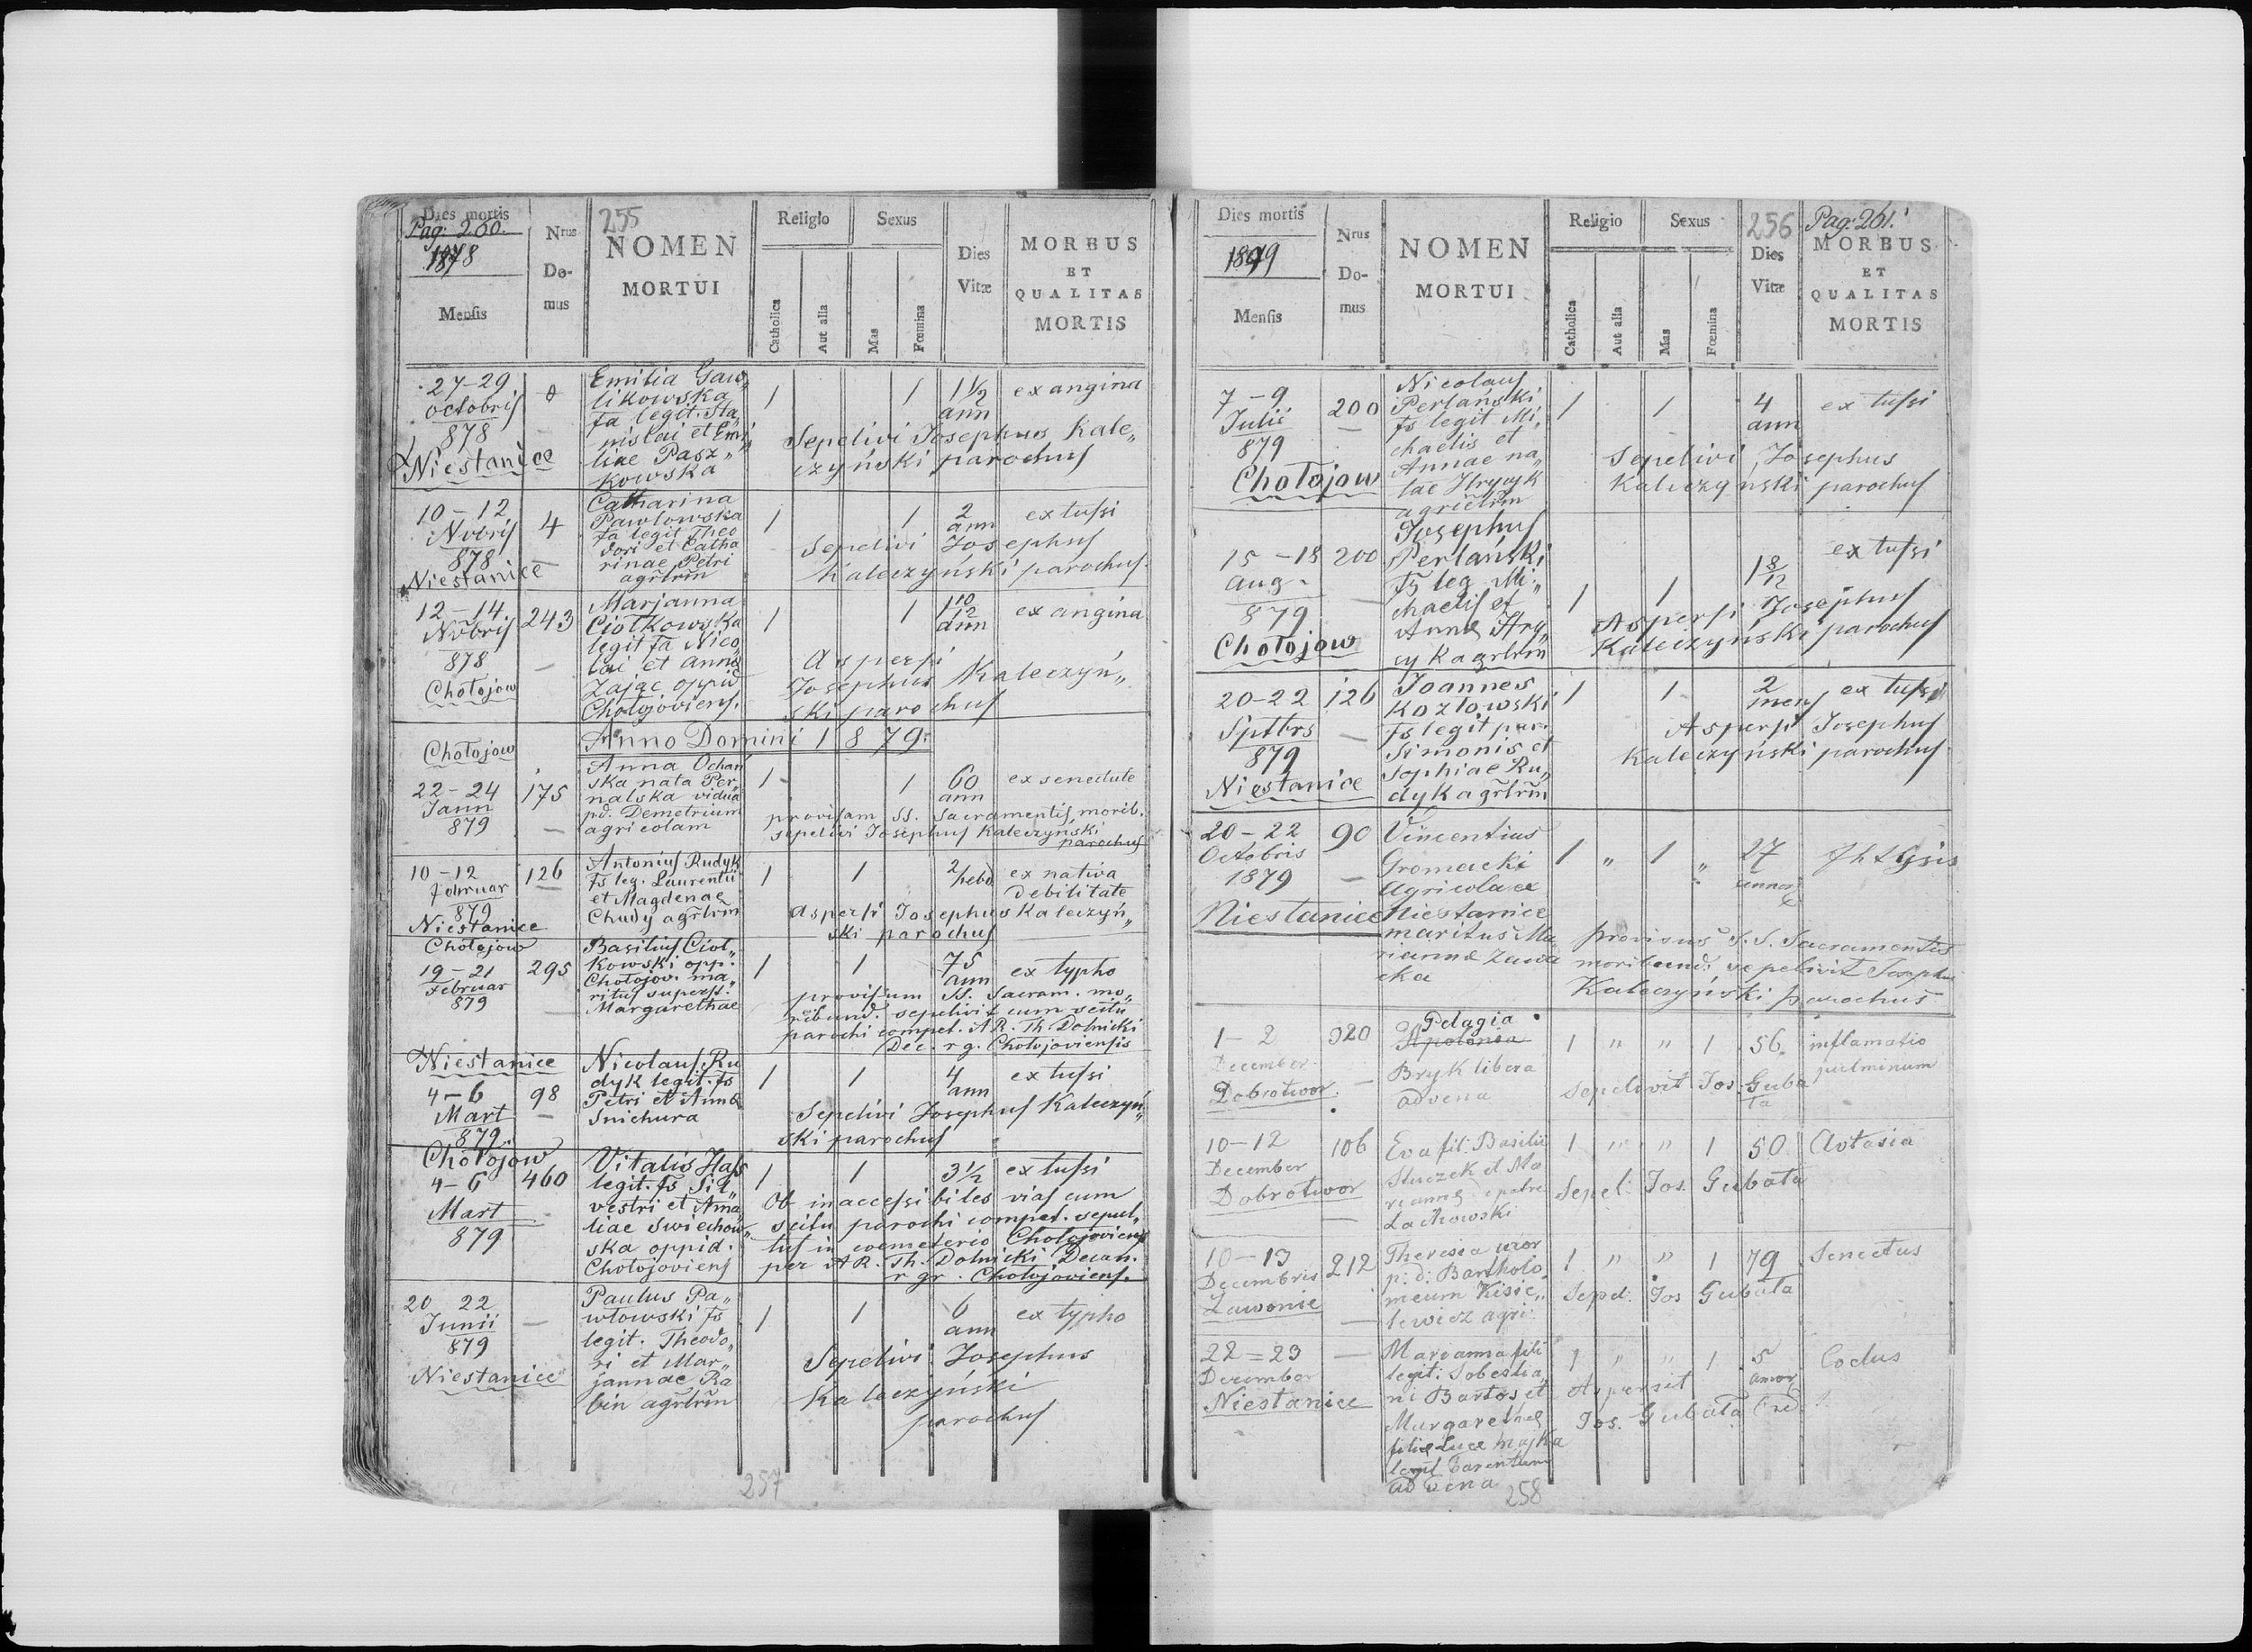 Dies mortis
Pag. 260.
1878
Mensis
Nrus
Do-
mus
255
NOMEN
MORTUI
Religio
Catholica
Aut alia
Sexus
Mas
Fœmina
Dies
Vitæ
MORBUS
ET
QUALITAS
MORTIS
27-29
Octobris
878
Niestanice
Emilia Gaw„
likowska
fa legit. Sta„
nislai et Emi„
liae Pasz„
kowska
1
1
1½
ann
ex angina
Sepelivi Josephus Kale„
czyński parochus
10-12
Nvbris
878
Niestanice
4
Catharina
Pawlowska
fa legit Theo
dori et Catha
rinae Petri
agrlrm
1
1
2
ann
ex tussi
Sepelivi Josephus
Kaleczyński parochus
12-14
Nvbris
878
Chołojow
243
Marjanna
Ciołkowska
legit fa Nico„
lai et Annæ
Zając oppid
Chołojoviens.
1
1
1 10/12
ann
ex angina
Aspersi
Josephus Kaleczyń„
ski parochus
Chołojow
Anno Domini 1879.
22-24
Jann
879
175
Anna Ochań
ska nata Per„
nalska vidua
pd. Demetrium
agricolam
1
1
60
ann
ex senectute
provisam SS. Sacramentis, morib.
sepelivi Josephus Kaleczynski
parochus
10-12
Februar
879
Niestanice
126
Antonius Rudyk
fs leg. Laurentii
et Magdenae
Chudy agrlrm
1
1
2
hebd
ex nativa
debilitate
aspersi Josephus Kaleczyń„
ski parochus
Chołojow
19-21
Februar
879
295
Basilius Cioł„
kowski opp.
Chołojov. ma„
ritus superst.
Margarethae
1
1
75
ann
ex typho
provisum SS. Sacram. mo„
ribund. sepelivit cum scitu
parochi compet. A R. Th. Dolnicki
Dec. r g. Chołojoviensis
Niestanice
4-6
Mart
879
98
Nicolaus Ru
dyk legit. fs
Petri et Annæ
Snichura
1
1
4
ann
ex tussi
Sepelivi Josephus Kaleczyń„
ski parochus
Chołojow
4-6
Mart
879
460
Vitalis Hass
legit. fs Sil
vestri et Ama„
liae Swiechow„
ska oppid.
Chołojoviens
1
1
3½
ex tussi
Ob inaccessibiles vias cum
scitu parochi compet. sepul„
tus in coemeterio Chołojoviens
per A R. Th. Dolnicki Decan.
r gr. Chołojoviens.
20 22
Junii
879
Niestanice
Paulus Pa„
wlowski fs
legit. Theodo„
ri et Mar„
jannae Ra
bin agrlrm
1
1
6
ann
ex typho
Sepelivi Josephus
Kaleczyński
parochus
257
Dies mortis
1879
Mensis
Nrus
Do-
mus
NOMEN
MORTUI
Religio
Catholica
Aut alia
Sexus
Mas
Fœmina
256
Dies
Vitæ
Pag. 261.
MORBUS
ET
QUALITAS
MORTIS
7-9
Julii
879
Chołojow
200
Nicolaus
Perlański
fs legit Mi„
chaelis et
Annae na„
tae Hrycyk
1
1
4
ann
ex tussi
Sepelivi Josephus
Kaleczyński parochus
15-18
Aug.
879
Chołojow
200
Josephus
Perlański
fs leg. Mi„
chaelis et
Annæ Hry„
cyk agrlrm
1
1
1 8/12
ex tussi
Aspersi Josephus
Kaleczyński parochus
20-22
Sptbrs
879
Niestanice
126
Joannes
Kozlowski
fs legit par.
Simonis et
Sophiae Ru„
dyk agrlrm
1
1
2
mens
ex tussi
Aspersi Josephus
Kaleczyński parochus
20-22
Octobris
1879
Niestanice
90
Vincentius
Gromacki
Agricola ex
Niestanice
maritus Ma
riannæ Zawa
cka
1 „ 1 „
27
annor
Phtysis
provisus S. S. Sacramentis
moribund. sepelivit Josephus
Kaleczyński parochus
1-2
December
Dobrotwor.
320
Pelagia
Apolonia
Bryk libera
advena
1 „ „ 1
56.
inflamatio
pulminum
sepelivit Jos. Guba
ta
10-12
December
Dobrotwor
106
Eva fil: Basilii
Stuczek et Ma
riannæ
Lachowski
1 „ „ 1
50
Sepel. Jos. Gubata
10-13
Decembris
Zawonie
212
Theresia uxor
p. d. Bartholo„
meum Kisie„
lewicz agri.
1 „ „ 1
79
Senectus
Sepel. Jos Gubata
22=23
December
Niestanice
Marianna fili
legit: Sobestia„
ni Bartos et
Margarethæ
filiæ Lucæ Majka
legit parentum
advena
1 „ „ 1
5
annor
Aspersit
Jos. Gubata
258